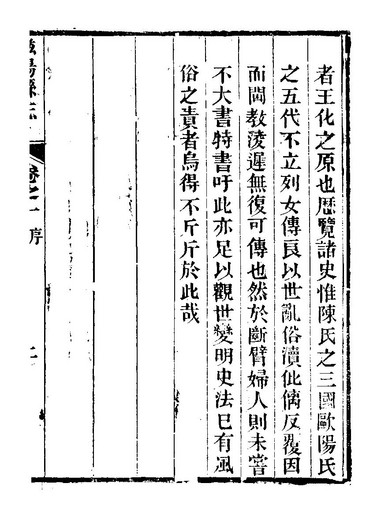 者王化之原也歷覽諸史惟陳氏之三國歐陽氏
之五代不立列女傳良以世亂俗瀆仳離反覆因
而閫教淩遲無復可傳也然於斷臂婦人則未嘗
不大書特書吁此亦足以觀世變明史法已有風
俗之責者烏得不斤斤於此哉
陽縣志
卷之一 序